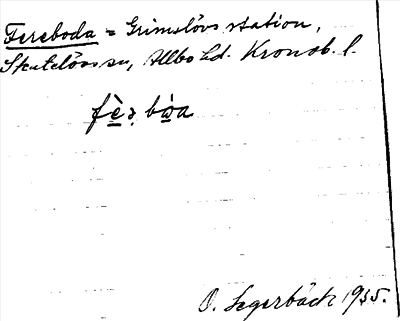 Fereboda = Grimslövs station,
Skatelövs sn, Allbo hd. Kronob. l.
fè̲ɿ̣ bὼ̲a
O. Segerbäck 1935.